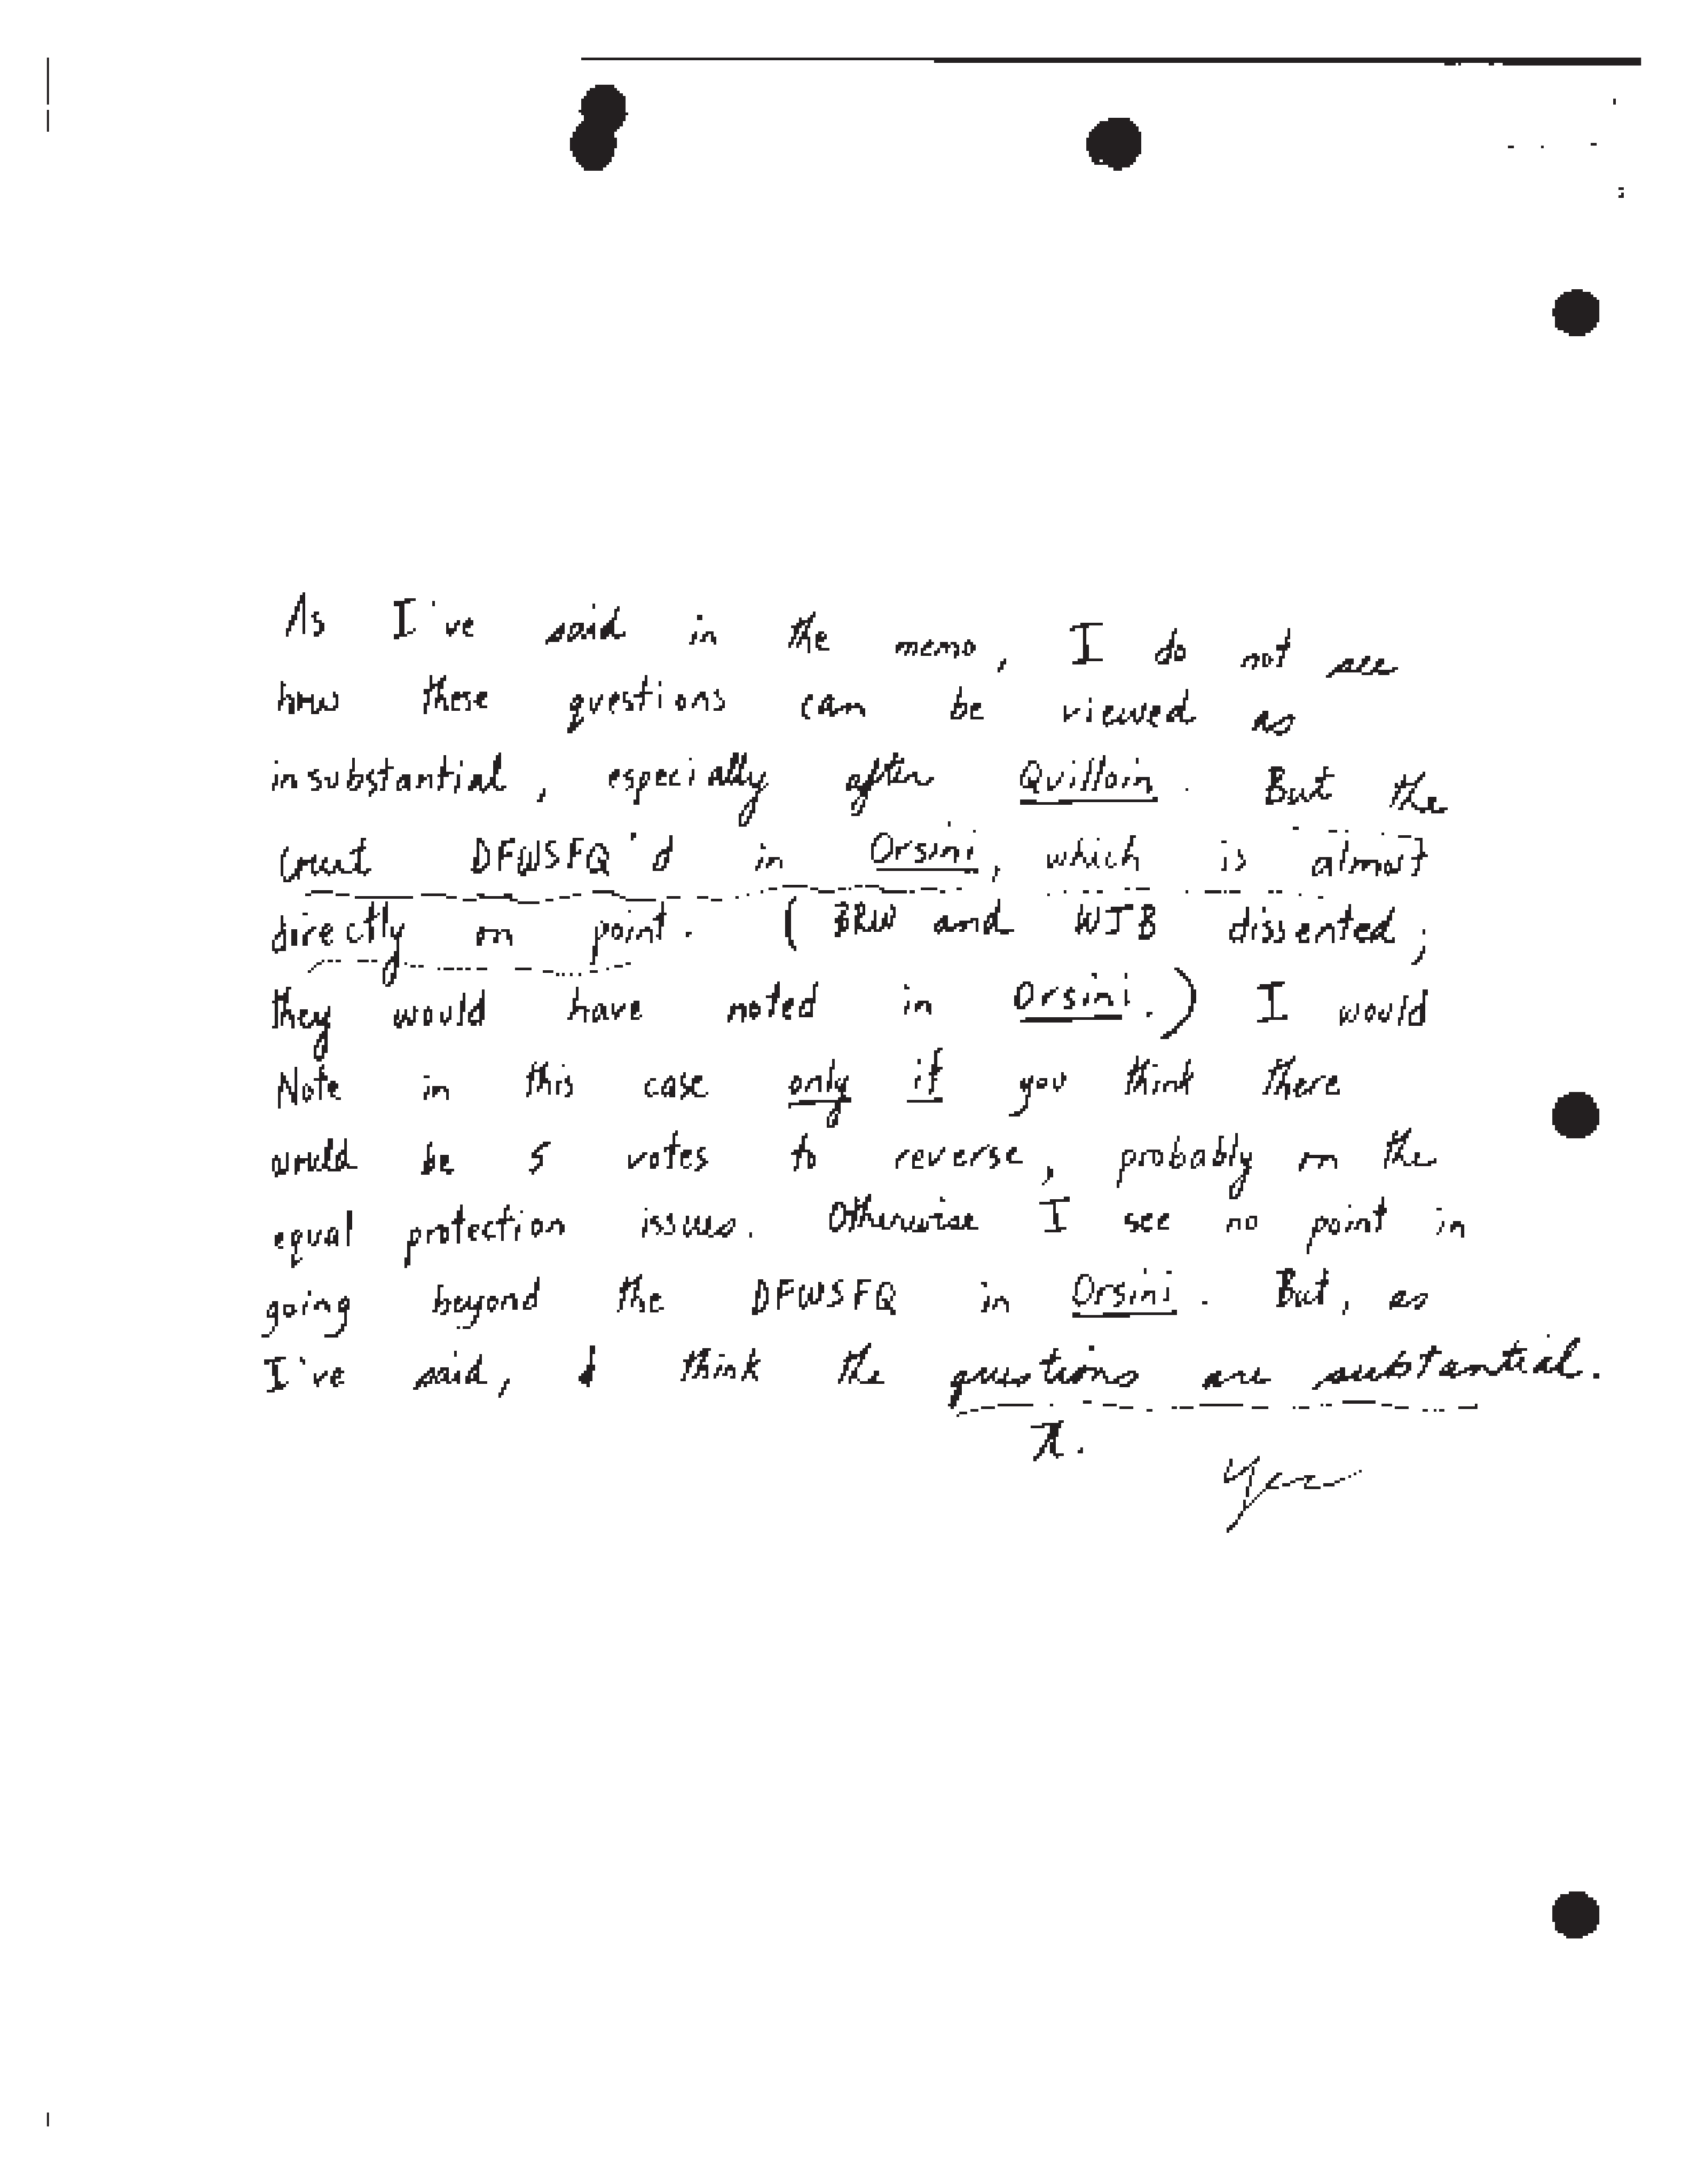 As I've said in the memo, I do not see
how these questions can be viewed as
insubstantial, especially after Quilloin. But the
Court DFWSFQ'd in Orsini, which is almost
directly on point. (BRW and WJB dissented;
they would have noted in Orsini.) I would
Note in this case only if you think there
would be 5 votes to reverse, probably on the
equal protection issues. Otherwise I see no point in
going beyond the DFWSFQ in Orsini. But, as
I've said, I think the questions are substantial.
Yes